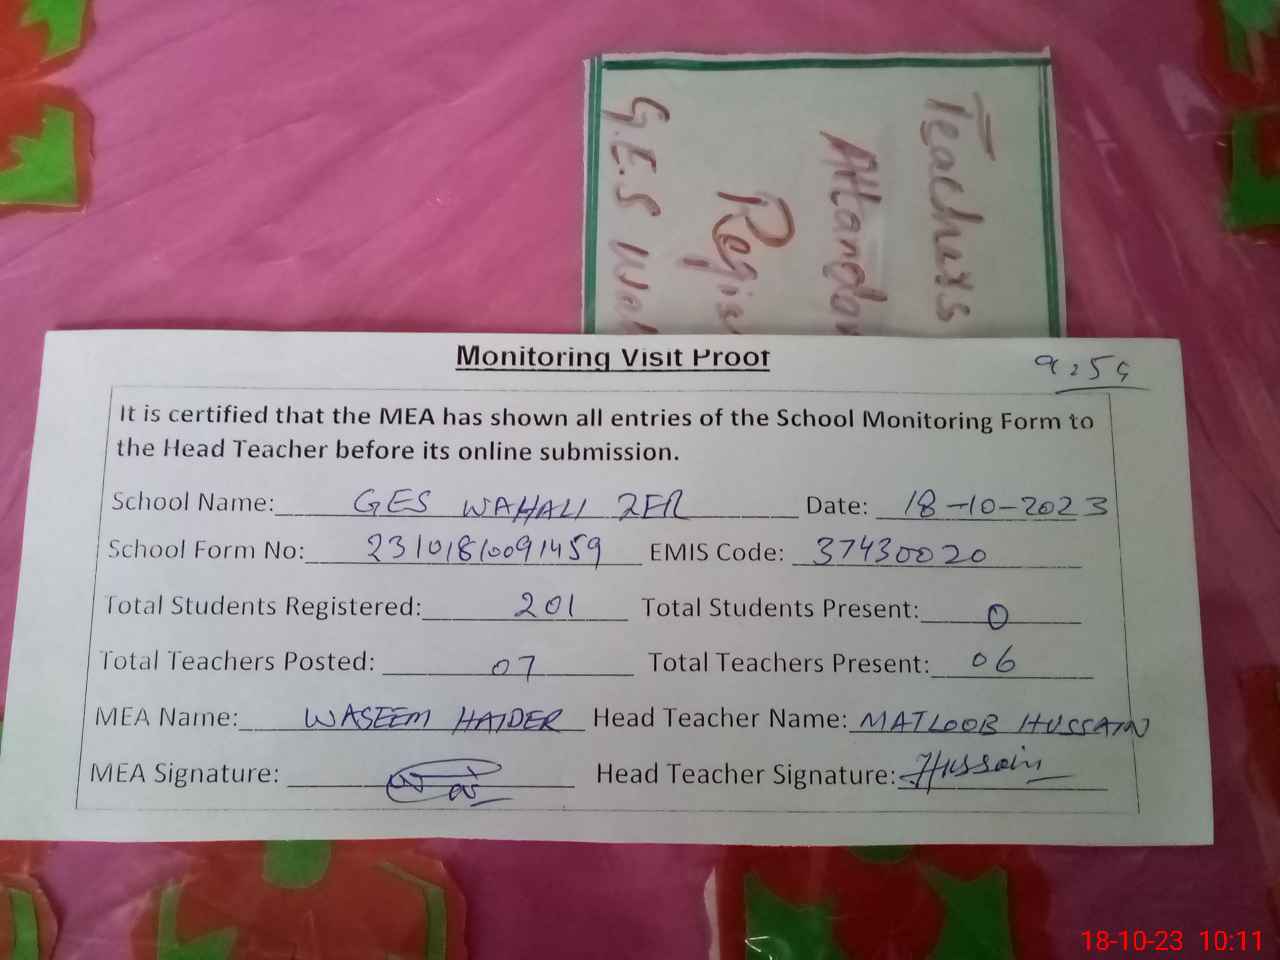 Teachers
Attendan
Regis
G.E.S Wah
Monitoring Visit Proof
9:59
It is certified that the MEA has shown all entries of the School Monitoring Form to
the Head Teacher before its online submission.
School Name: GES WAHALI ZER Date: 18-10-2023
School Form No: 23101810091459 EMIS Code: 37430020
Total Students Registered: 201 Total Students Present: 0
Total Teachers Posted: 07 Total Teachers Present: 06
MEA Name: WASEEM HAIDER Head Teacher Name: MATLOOB HUSSAIN
MEA Signature: Head Teacher Signature: Hussain
18-10-23 10:11